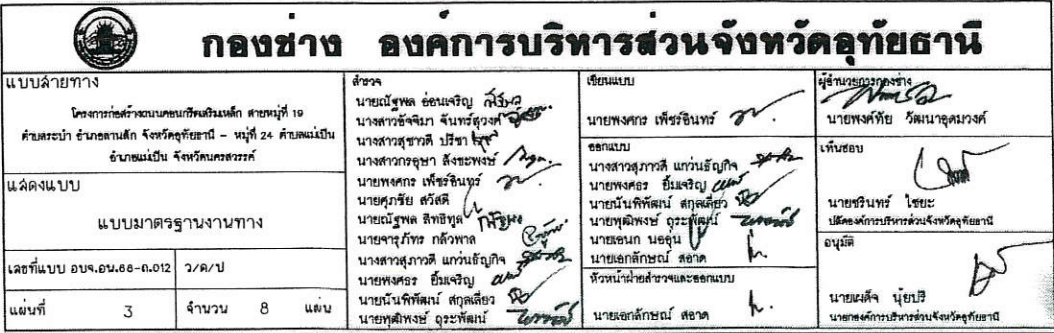 กองช่าง องค์การบริหารส่วนจังหวัดอุทัยธานี
แบบสายทาง
โครงการก่อสร้างถนนคอนกรีตเสริมเหล็ก สายหมู่ที่ 19
ตำบลระบำ อำเภอลานสัก จังหวัดอุทัยธานี - หมู่ที่ 24 ตำบลแม่เปิน
อำเภอแม่เปิน จังหวัดนครสวรรค์
แสดงแบบ
แบบมาตรฐานงานทาง
เลขที่แบบ อบจ.อน.68-ถ.012 ว/ด/ป
แผ่นที่ 3 จำนวน 8 แผ่น
สำรวจ
นายณัฐพล อ่อนเจริญ
นางสาวอัจจิมา จันทร์สุวงศ์
นางสาวสุชาวดี ปรีชา
นางสาวกรอุษา สังขะพงษ์
นายพงศกร เพ็ชรอินทร์
นายศุภชัย สวัสดี
นายณัฐพล สิทธิทูล
นายจารุภัทร กลัวพาล
นางสาวสุภาวดี แกว่นธัญกิจ
นายพงศธร ยิ้มเจริญ
นายนันพิพัฒน์ สกุลเลี่ยว
นายพุฒิพงษ์ ถุระพัฒน์
เขียนแบบ
นายพงศกร เพ็ชรอินทร์
ออกแบบ
นางสาวสุภาวดี แกว่นธัญกิจ
นายพงศธร ยิ้มเจริญ
นายนันพิพัฒน์ สกุลเลี่ยว
นายพุฒิพงษ์ ถุระพัฒน์
นายเอนก นออุ่น
นายเอกลักษณ์ สอาด
หัวหน้าฝ่ายสำรวจและออกแบบ
นายเอกลักษณ์ สอาด
ผู้อำนวยการกองช่าง
นายพงค์ทัย วัฒนาอุดมวงค์
เห็นชอบ
นายชรินทร์ ไชยะ
ปลัดองค์การบริหารส่วนจังหวัดอุทัยธานี
อนุมัติ
นายเผด็จ นุ้ยปรี
นายกองค์การบริหารส่วนจังหวัดอุทัยธานี